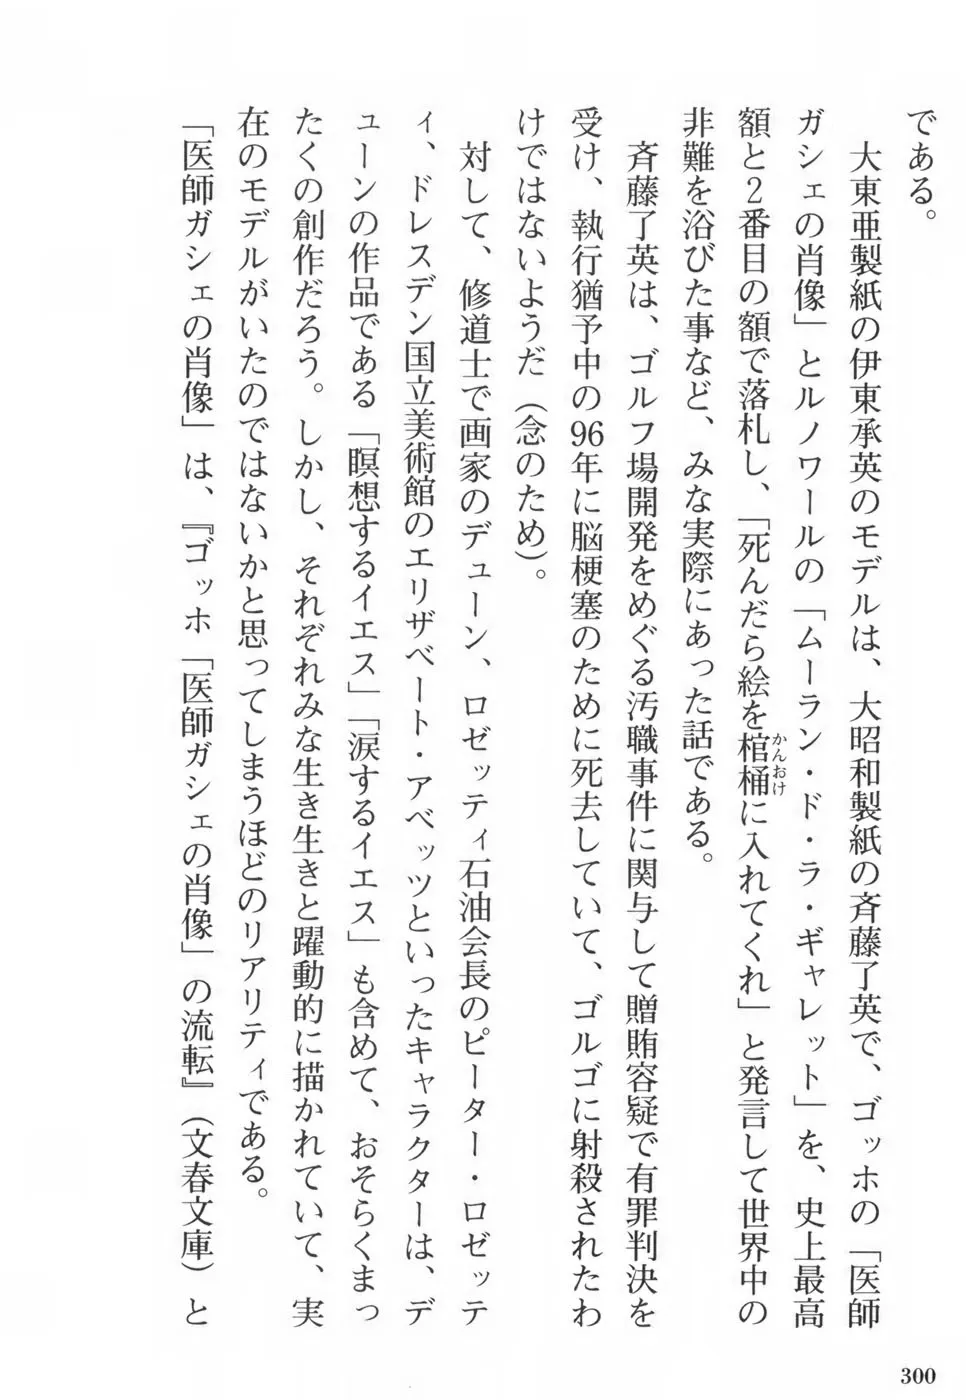 である。
　大東亜製紙の伊東承英のモデルは、大昭和製紙の斉藤了英で、ゴッホの「医師
ガシェの肖像」とルノワールの「ムーラン・ド・ラ・ギャレット」を、史上最高
額と2番目の額で落札し、「死んだら絵を棺桶に入れてくれ」と発言して世界中の
かんおけ
非難を浴びた事など、みな実際にあった話である。
　斉藤了英は、ゴルフ場開発をめぐる汚職事件に関与して贈賄容疑で有罪判決を
受け、執行猶予中の96年に脳梗塞のために死去していて、ゴルゴに射殺されたわ
けではないようだ（念のため）。
　対して、修道士で画家のデューン、ロゼッティ石油会長のピーター・ロゼッテ
ィ、ドレスデン国立美術館のエリザベート・アベッツといったキャラクターは、デ
ューンの作品である「瞑想するイエス」「涙するイエス」も含めて、おそらくまっ
たくの創作だろう。しかし、それぞれみな生き生きと躍動的に描かれていて、実
在のモデルがいたのではないかと思ってしまうほどのリアリティである。
「医師ガシェの肖像」は、『ゴッホ「医師ガシェの肖像」の流転』（文春文庫）と
300